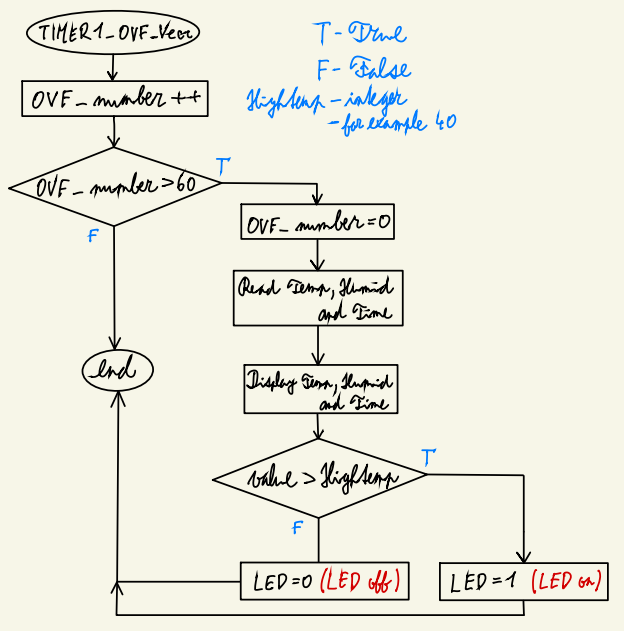 TIMER1_OVF_Vect
T - True
F - False
Hightemp - integer
- for example 40
OVF_number++
OVF_number>60
T
F
OVF_number=0
Read Temp, Humid
and Time
end
Display Temp, Humid
and Time
value > Hightemp
T
F
LED=0 (LED off)
LED=1 (LED on)